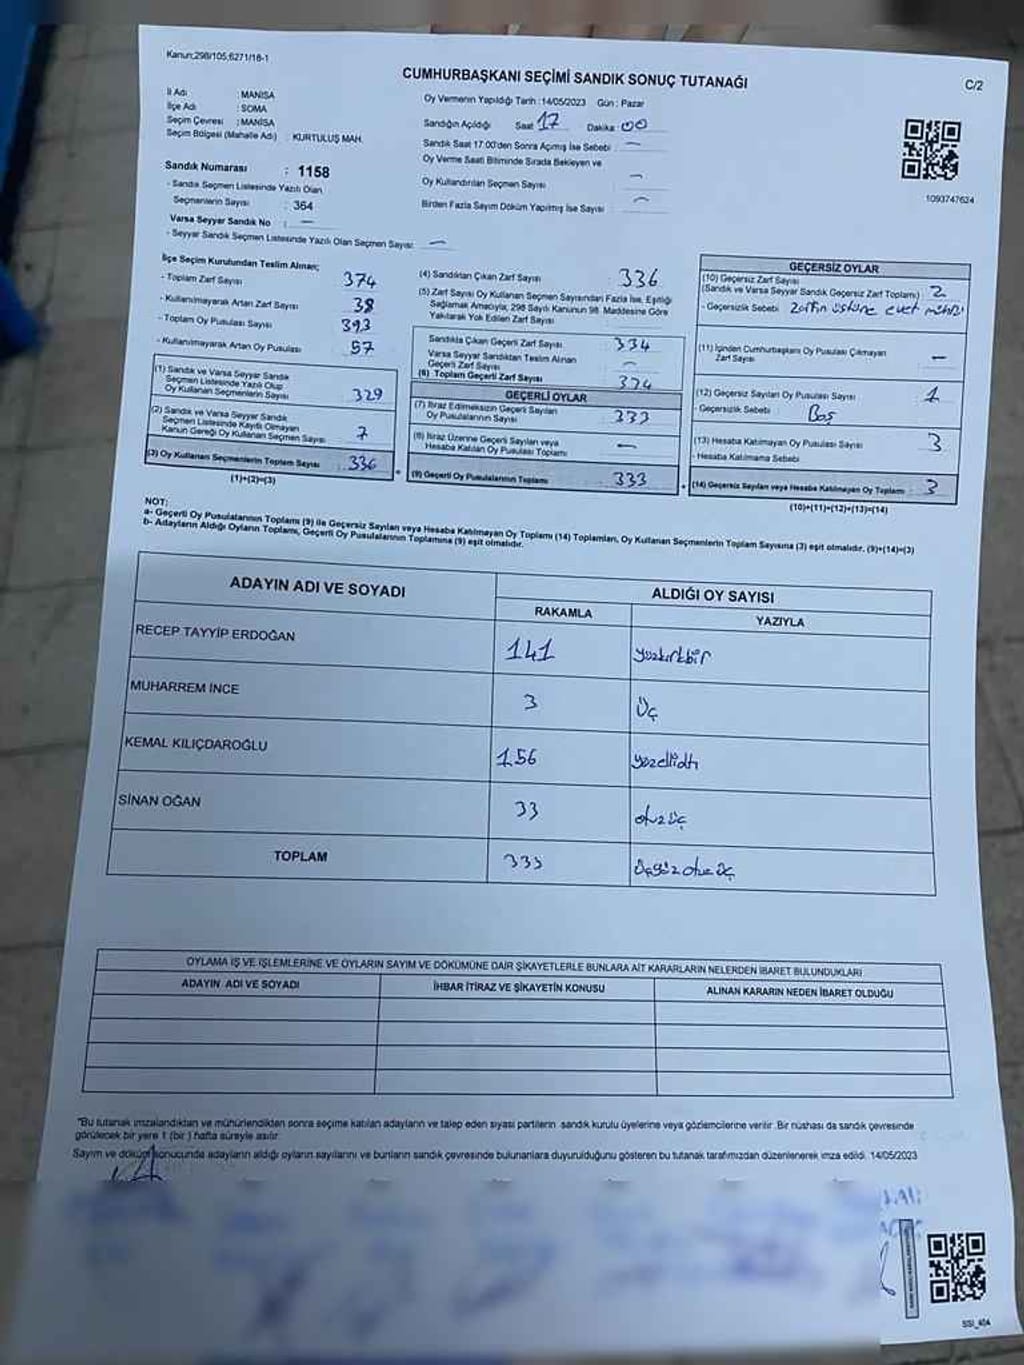 Kanun;298/105;6271/18-1
CUMHURBAŞKANI SEÇİMİ SANDIK SONUÇ TUTANAĞI
C/2
İl Adı : MANİSA
İlçe Adı : SOMA
Seçim Çevresi : MANİSA
Seçim Bölgesi (Mahalle Adı) : KURTULUŞ MAH.
Oy Vermenin Yapıldığı Tarih :14/05/2023 Gün : Pazar
Sandığın Açıldığı Saat 17 Dakika 00
Sandık Saat 17.00'den Sonra Açımış İse Sebebi : —
Oy Verme Saati Bitiminde Sırada Bekleyen ve
Oy Kullandırılan Seçmen Sayısı —
Birden Fazla Sayım Döküm Yapılmış İse Sayısı —
1093747624
Sandık Numarası : 1158
- Sandık Seçmen Listesinde Yazılı Olan
Seçmenlerin Sayısı : 364
Varsa Seyyar Sandık No : —
- Seyyar Sandık Seçmen Listesinde Yazılı Olan Seçmen Sayısı: —
İlçe Seçim Kurulundan Teslim Alınan;
- Toplam Zarf Sayısı 374
- Kullanılmayarak Artan Zarf Sayısı 38
- Toplam Oy Pusulası Sayısı 393
- Kullanılmayarak Artan Oy Pusulası 57
(1) Sandık ve Varsa Seyyar Sandık
Seçmen Listesinde Yazılı Olup
Oy Kullanan Seçmenlerin Sayısı 329
(2) Sandık ve Varsa Seyyar Sandık
Seçmen Listesinde Kayıtlı Olmayan
Kanun Gereği Oy Kullanan Seçmen Sayısı 7
(3) Oy Kullanan Seçmenlerin Toplam Sayısı 336
(1)+(2)=(3)
(4) Sandıktan Çıkan Zarf Sayısı 336
(5) Zarf Sayısı Oy Kullanan Seçmen Sayısından Fazla İse, Eşitliği
Sağlamak Amacıyla, 298 Sayılı Kanunun 98. Maddesine Göre
Yakılarak Yok Edilen Zarf Sayısı
Sandıkta Çıkan Geçerli Zarf Sayısı 334
Varsa Seyyar Sandıktan Teslim Alınan
Geçerli Zarf Sayısı —
(6) Toplam Geçerli Zarf Sayısı 334
GEÇERLİ OYLAR
(7) İtiraz Edilmeksizin Geçerli Sayılan
Oy Pusulalarının Sayısı 333
(8) İtiraz Üzerine Geçerli Sayılan veya
Hesaba Katılan Oy Pusulası Toplamı —
(9) Geçerli Oy Pusulalarının Toplamı 333
GEÇERSİZ OYLAR
(10) Geçersiz Zarf Sayısı
(Sandık ve Varsa Seyyar Sandık Geçersiz Zarf Toplamı) 2
- Geçersizlik Sebebi zarfın üstüne evet mührü
(11) İçinden Cumhurbaşkanı Oy Pusulası Çıkmayan
Zarf Sayısı —
(12) Geçersiz Sayılan Oy Pusulası Sayısı 1
- Geçersizlik Sebebi Boş
(13) Hesaba Katılmayan Oy Pusulası Sayısı 3
- Hesaba Katılmama Sebebi
(14) Geçersiz Sayılan veya Hesaba Katılmayan Oy Toplamı 3
(10)+(11)+(12)+(13)=(14)
NOT:
a- Geçerli Oy Pusulalarının Toplamı (9) ile Geçersiz Sayılan veya Hesaba Katılmayan Oy Toplamı (14) Toplamları, Oy Kullanan Seçmenlerin Toplam Sayısına (3) eşit olmalıdır. (9)+(14)=(3)
b- Adayların Aldığı Oyların Toplamı, Geçerli Oy Pusulalarının Toplamına (9) eşit olmalıdır.
ADAYIN ADI VE SOYADI
ALDIĞI OY SAYISI
RAKAMLA YAZIYLA
RECEP TAYYİP ERDOĞAN 141 yüzkırkbir
MUHARREM İNCE 3 Üç
KEMAL KILIÇDAROĞLU 156 yüzellialtı
SİNAN OĞAN 33 otuzüç
TOPLAM 333 üçyüzotuzüç
OYLAMA İŞ VE İŞLEMLERİNE VE OYLARIN SAYIM VE DÖKÜMÜNE DAİR ŞİKAYETLERLE BUNLARA AİT KARARLARIN NELERDEN İBARET BULUNDUKLARI
ADAYIN ADI VE SOYADI İHBAR İTİRAZ VE ŞİKAYETİN KONUSU ALINAN KARARIN NEDEN İBARET OLDUĞU
"Bu tutanak imzalandıktan ve mühürlendikten sonra seçime katılan adayların ve talep eden siyasi partilerin sandık kurulu üyelerine veya gözlemcilerine verilir. Bir nüshası da sandık çevresinde
görülecek bir yere 1 (bir) hafta süreyle asılır.
Sayım ve döküm sonucunda adayların aldığı oyların sayılarını ve bunların sandık çevresinde bulunanlara duyurulduğunu gösteren bu tutanak tarafımızdan düzenlenerek imza edildi. 14/05/2023
SSI_404